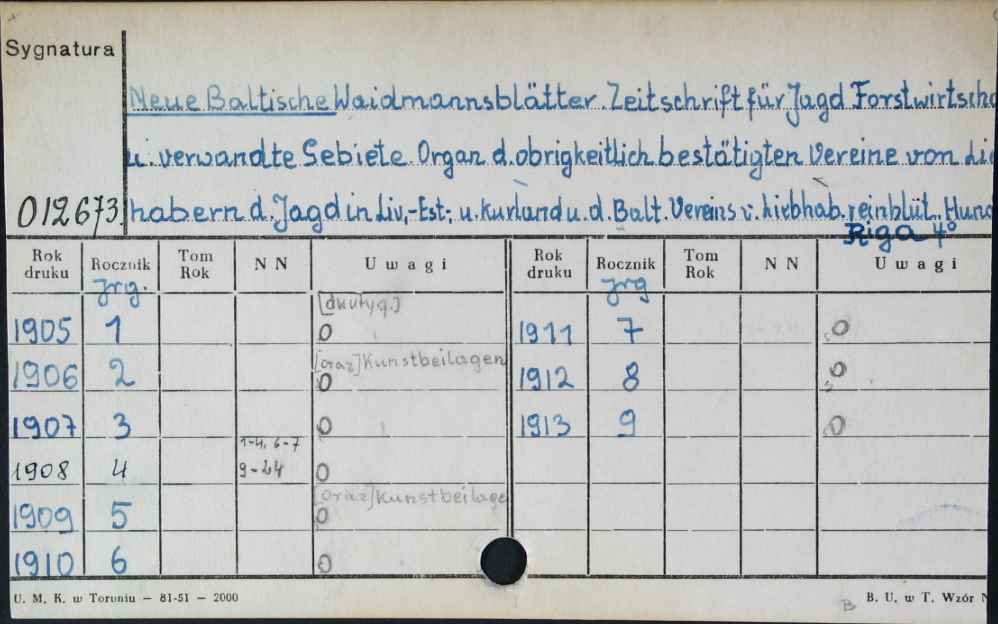 Sygnatura
Neue Baltische Waidmannsblätter. Zeitschrift für Jagd Forstwirtscha
u. verwandte Gebiete. Organ d. obrigkeitlich bestätigten Vereine von Lie
012673. habern d. Jagd in Liv,-Est,- u. Kurland u. d. Balt. Vereins v. Liebhab. reinblüt. Hund
Riga 4°
Rok druku Rocznik Tom Rok NN Uwagi Rok druku Rocznik Tom Rok NN Uwagi
Jrg. Jrg
[dwutyg.]
1905 1 0 1911 7 0
[oraz] Kunstbeilagen
1906 2 0 1912 8 0
1907 3 0 1913 9 0
1-4, 6-7
1908 4 9-24 0
[oraz] Kunstbeilage
1909 5 0
1910 6 0
U. M. K. w Toruniu — 81-51 — 2000
B
B. U. w T. Wzór N